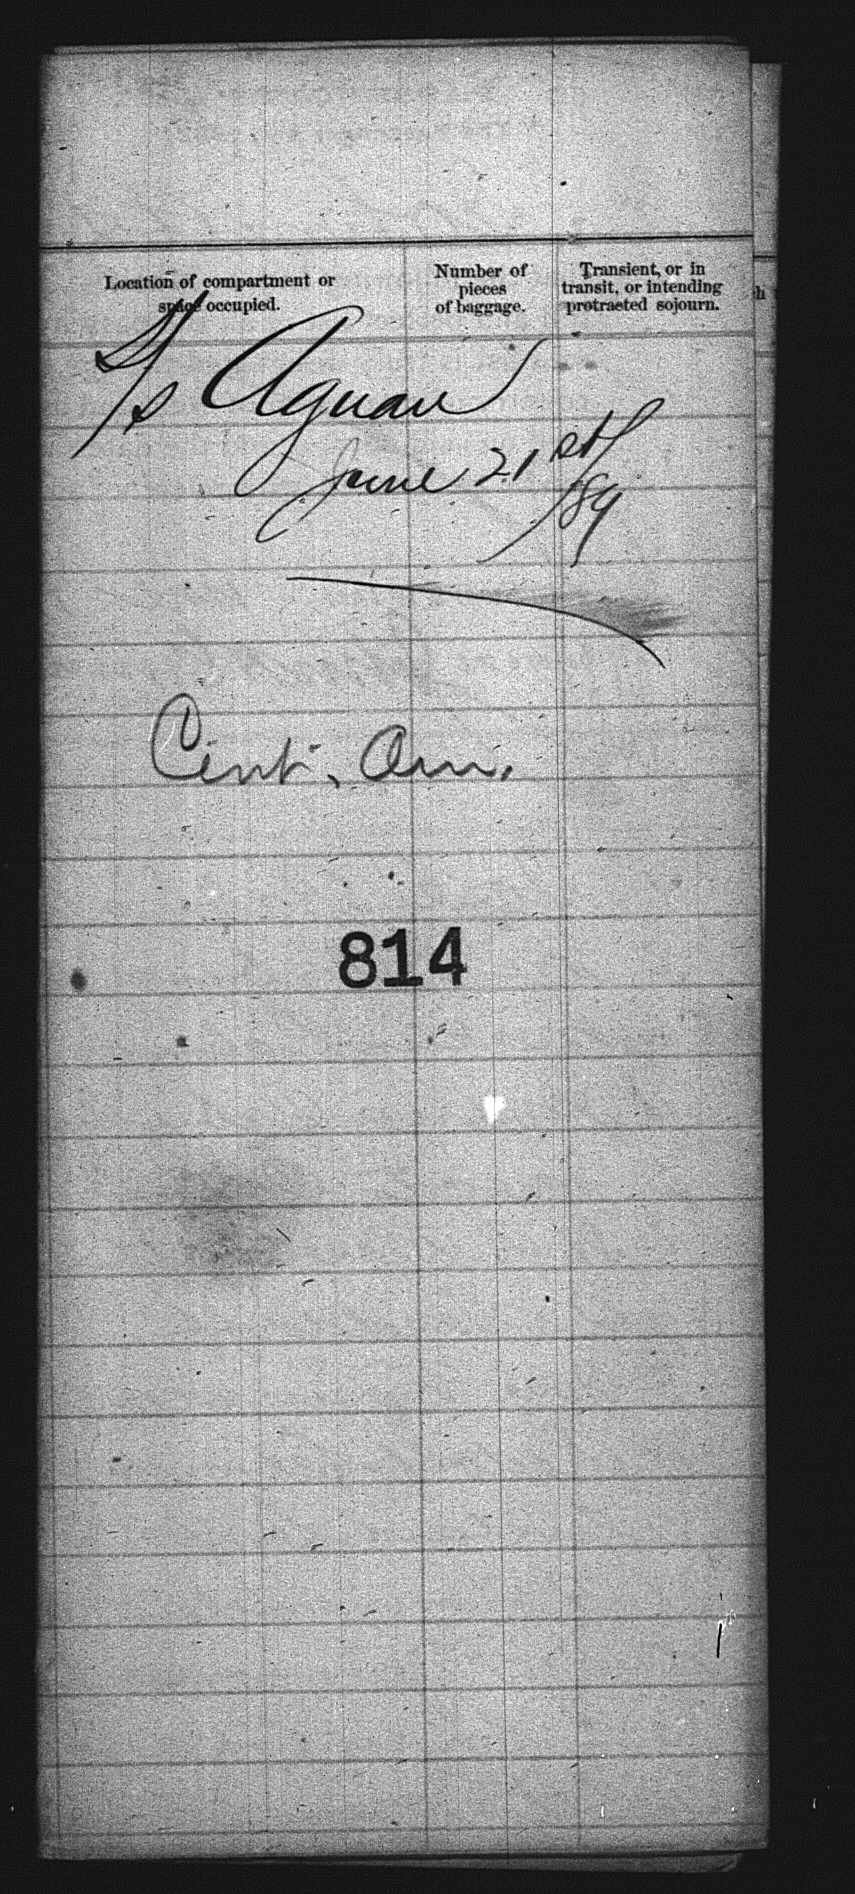 Location of compartment or
space occupied.
Number of
pieces
of baggage.
Transient, or in
transit, or intending
protracted sojourn.
h
S/s Aguan
June 21st/89
Cent. Am.
814